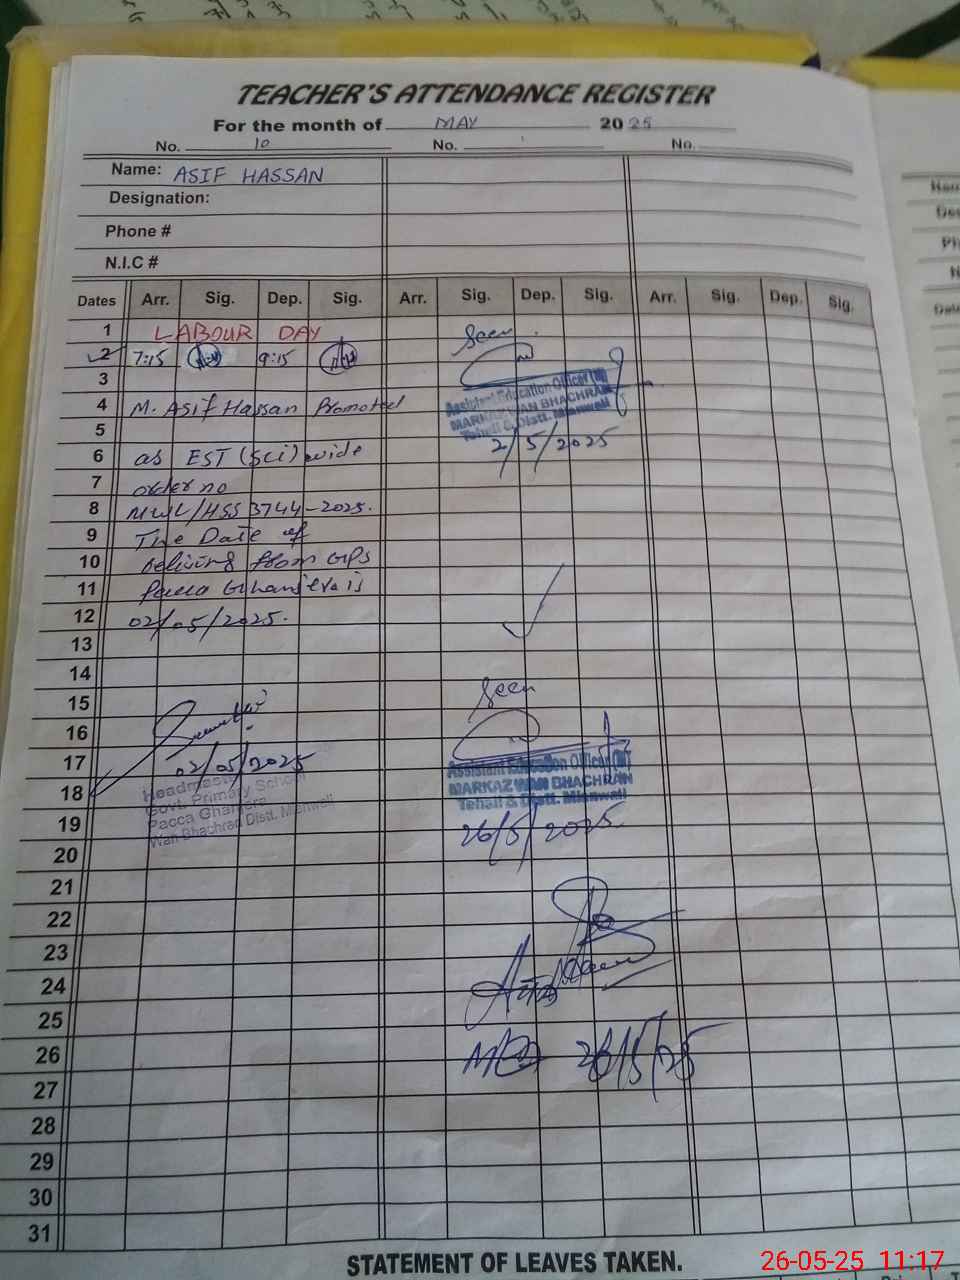 TEACHER'S ATTENDANCE REGISTER
For the month of MAY 2025
No. 10 No. No.
Name: ASIF HASSAN
Designation:
Phone #
N.I.C #
Dates Arr. Sig. Dep. Sig. Arr. Sig. Dep. Sig. Arr. Sig. Dep. Sig.
1 LABOUR DAY Seen
2 7:15 9:15
3
Assistant Education Officer (M)
MARKAZ WAN BHACHRAN
Tehsil & Distt. Mianwali
4 M. Asif Hassan Promoted
5 2/5/2025
6 as EST (Sci) wide
7 order no
8 MWL/HSS 3744-2025.
9 The Date of
10 Reliving from GPS
11 Pacca Ghanjera is
12 02/05/2025.
13
14
15 Seen
16
17 02/05/2025
Assistant Education Officer (M)
MARKAZ WAN BHACHRAN
Tehsil & Distt. Mianwali
18 Headmaster
Govt. Primary School
19 Pacca Ghanjera 26/5/2025
Wan Bhachran Distt. Mianwali
20
21
22
23
24
25
26 26/5/25
27
28
29
30
31
STATEMENT OF LEAVES TAKEN.
26-05-25 11:17